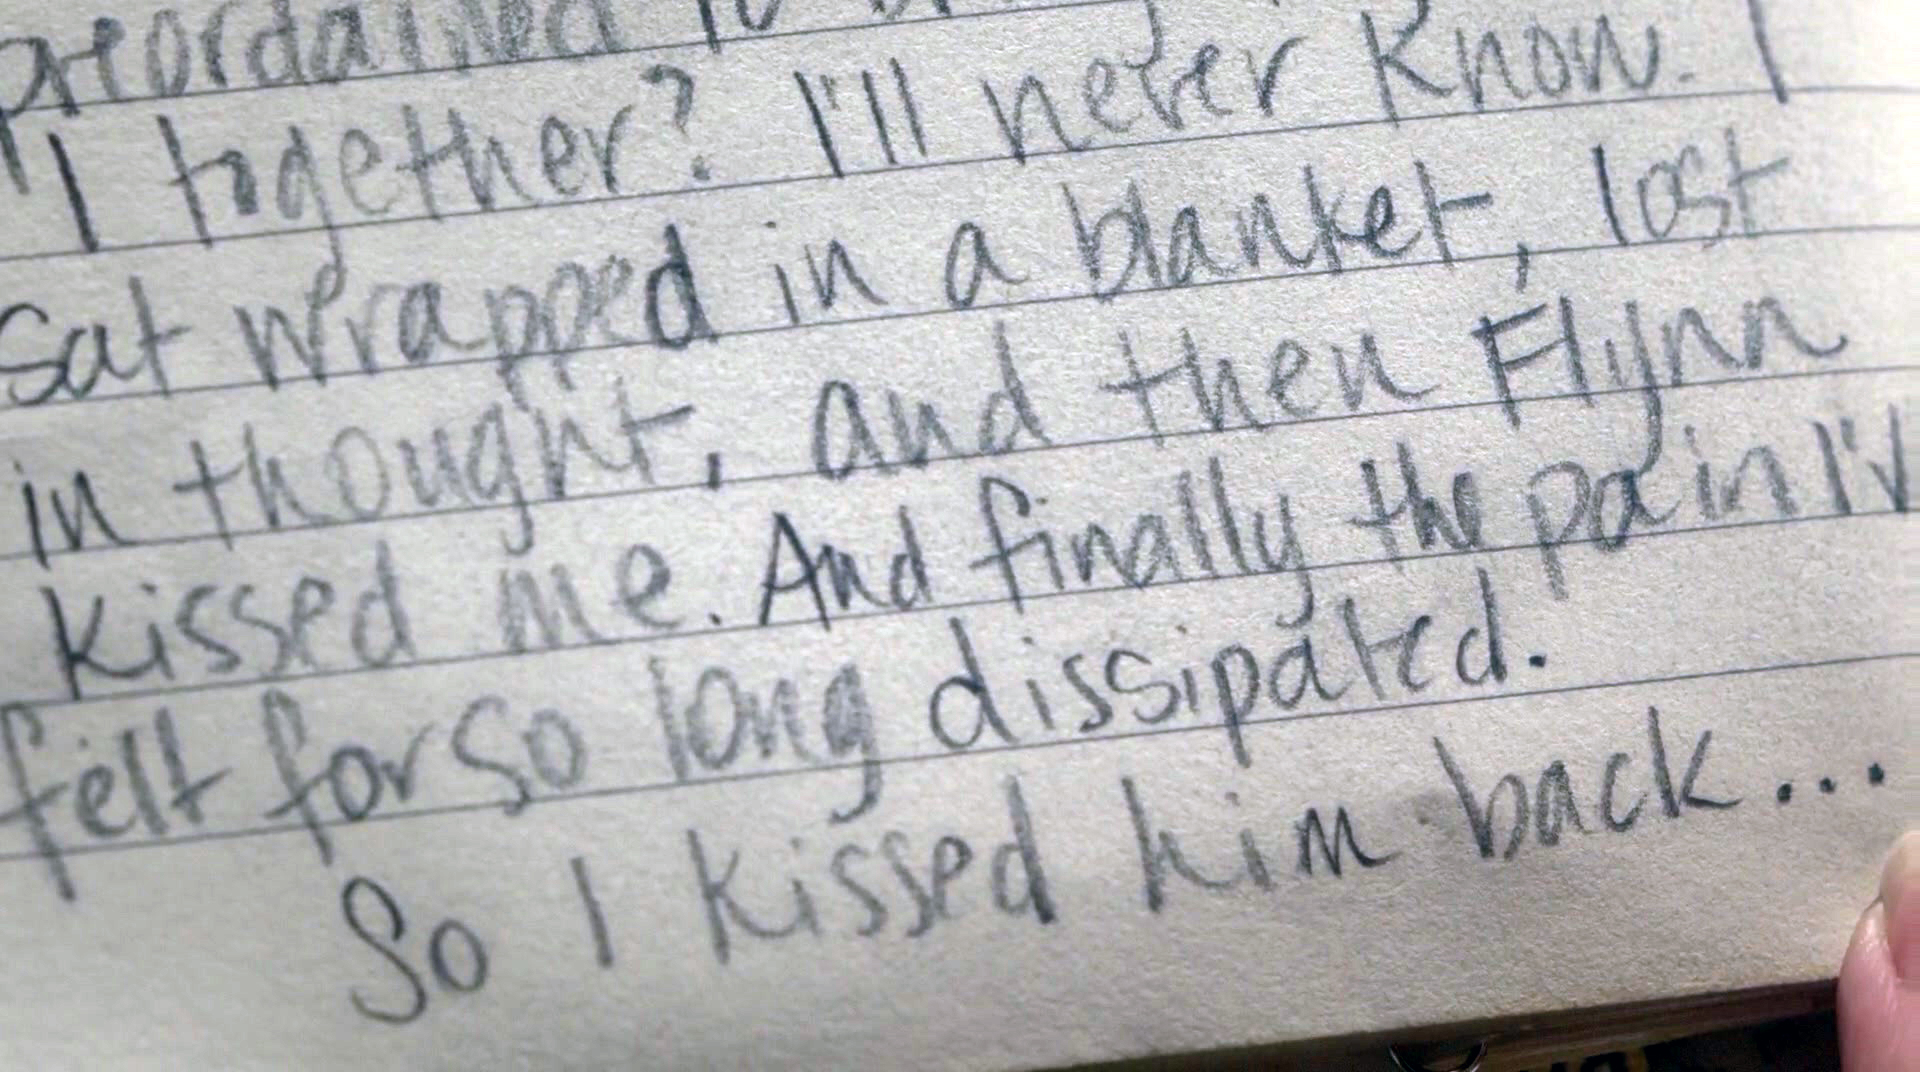 preordained to
I together? I'll never know. I
sat wrapped in a blanket, lost
in thought, and then Flynn
kissed me. And finally the pain I'v
felt for so long dissipated.
So I kissed him back...